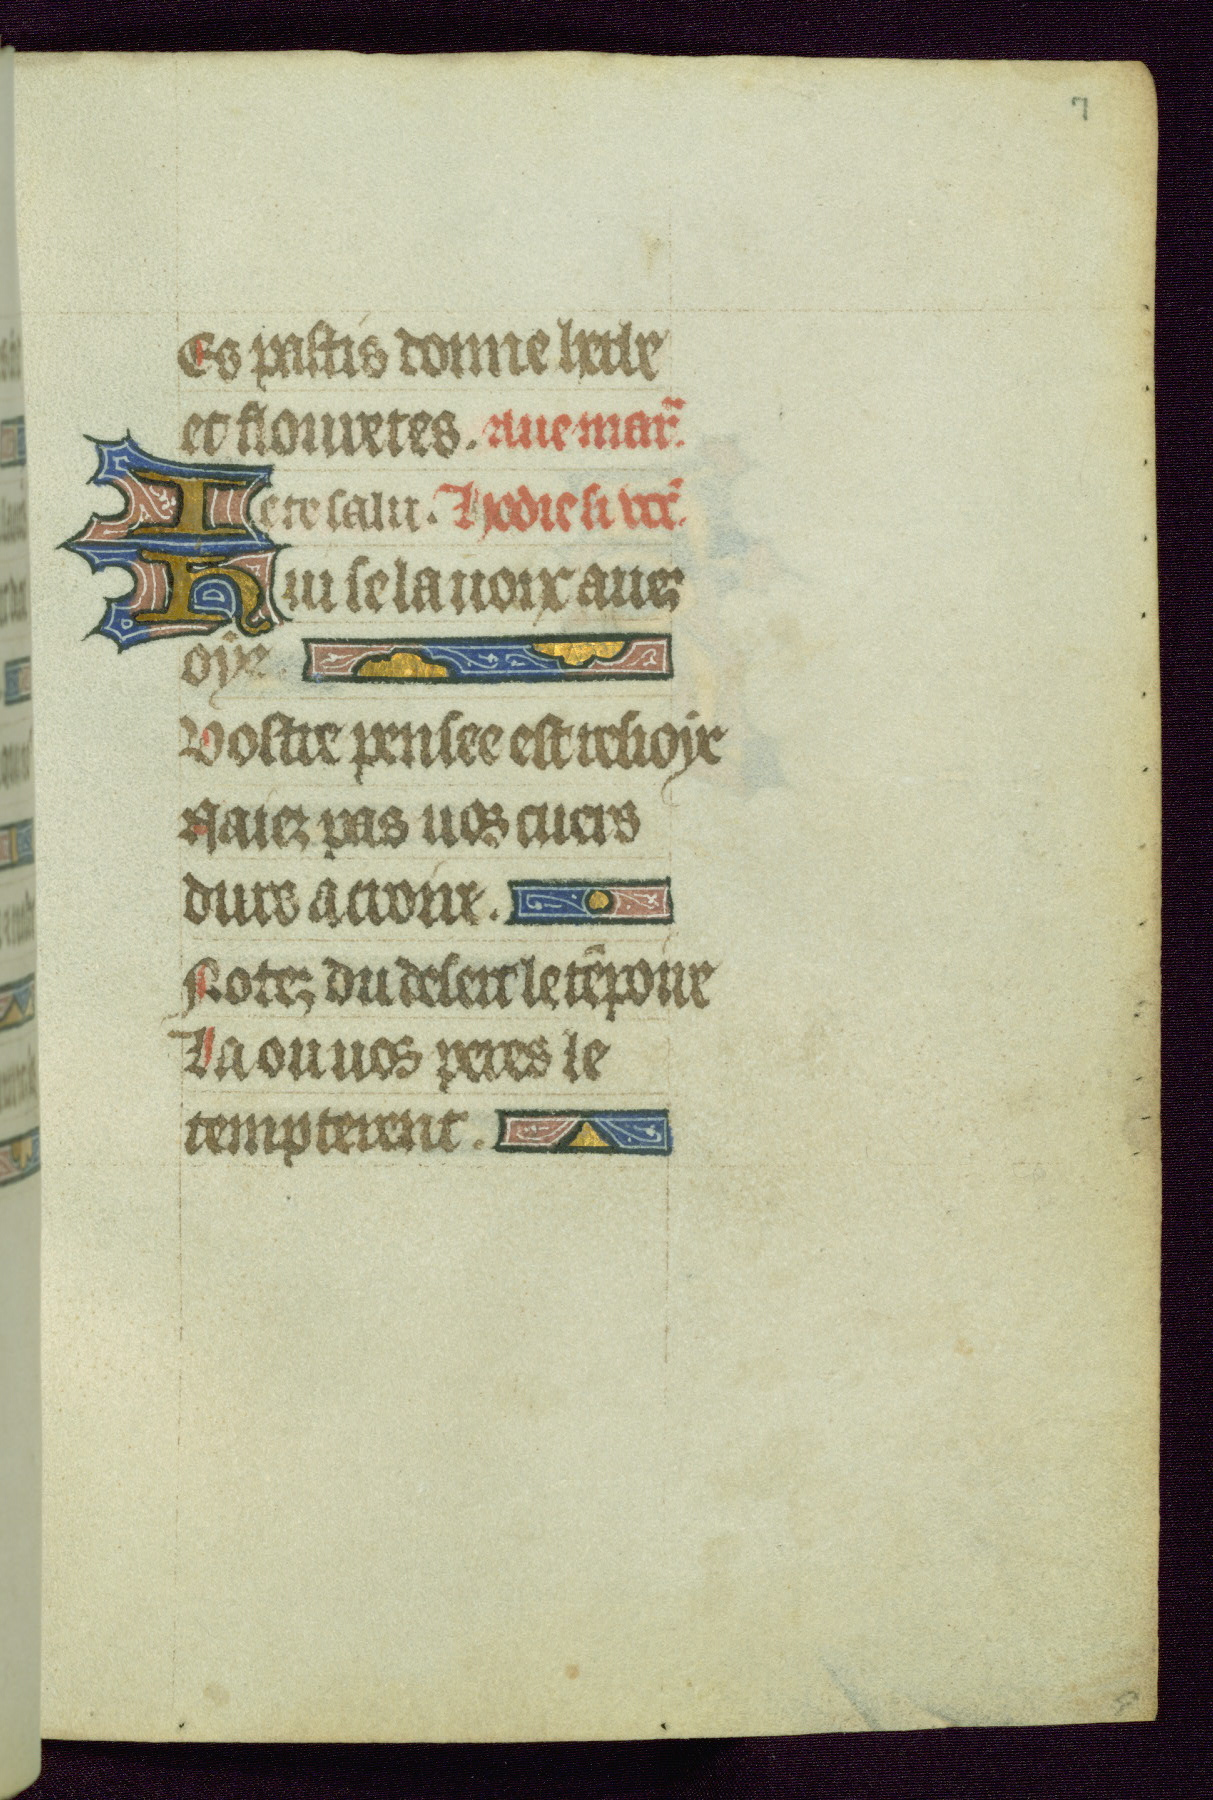 7
Es pastis donne herbe
et flouretes. Aue mar̃.
Ie te salu. Hodie si uoc̃.
Hui se la uoix auez
oÿe.
Vostre pensee est reslioÿe
Naiez pas uos cuers
durs a croire.
Notez du desert le tẽpoire
La ou uos peres le
tempterent.